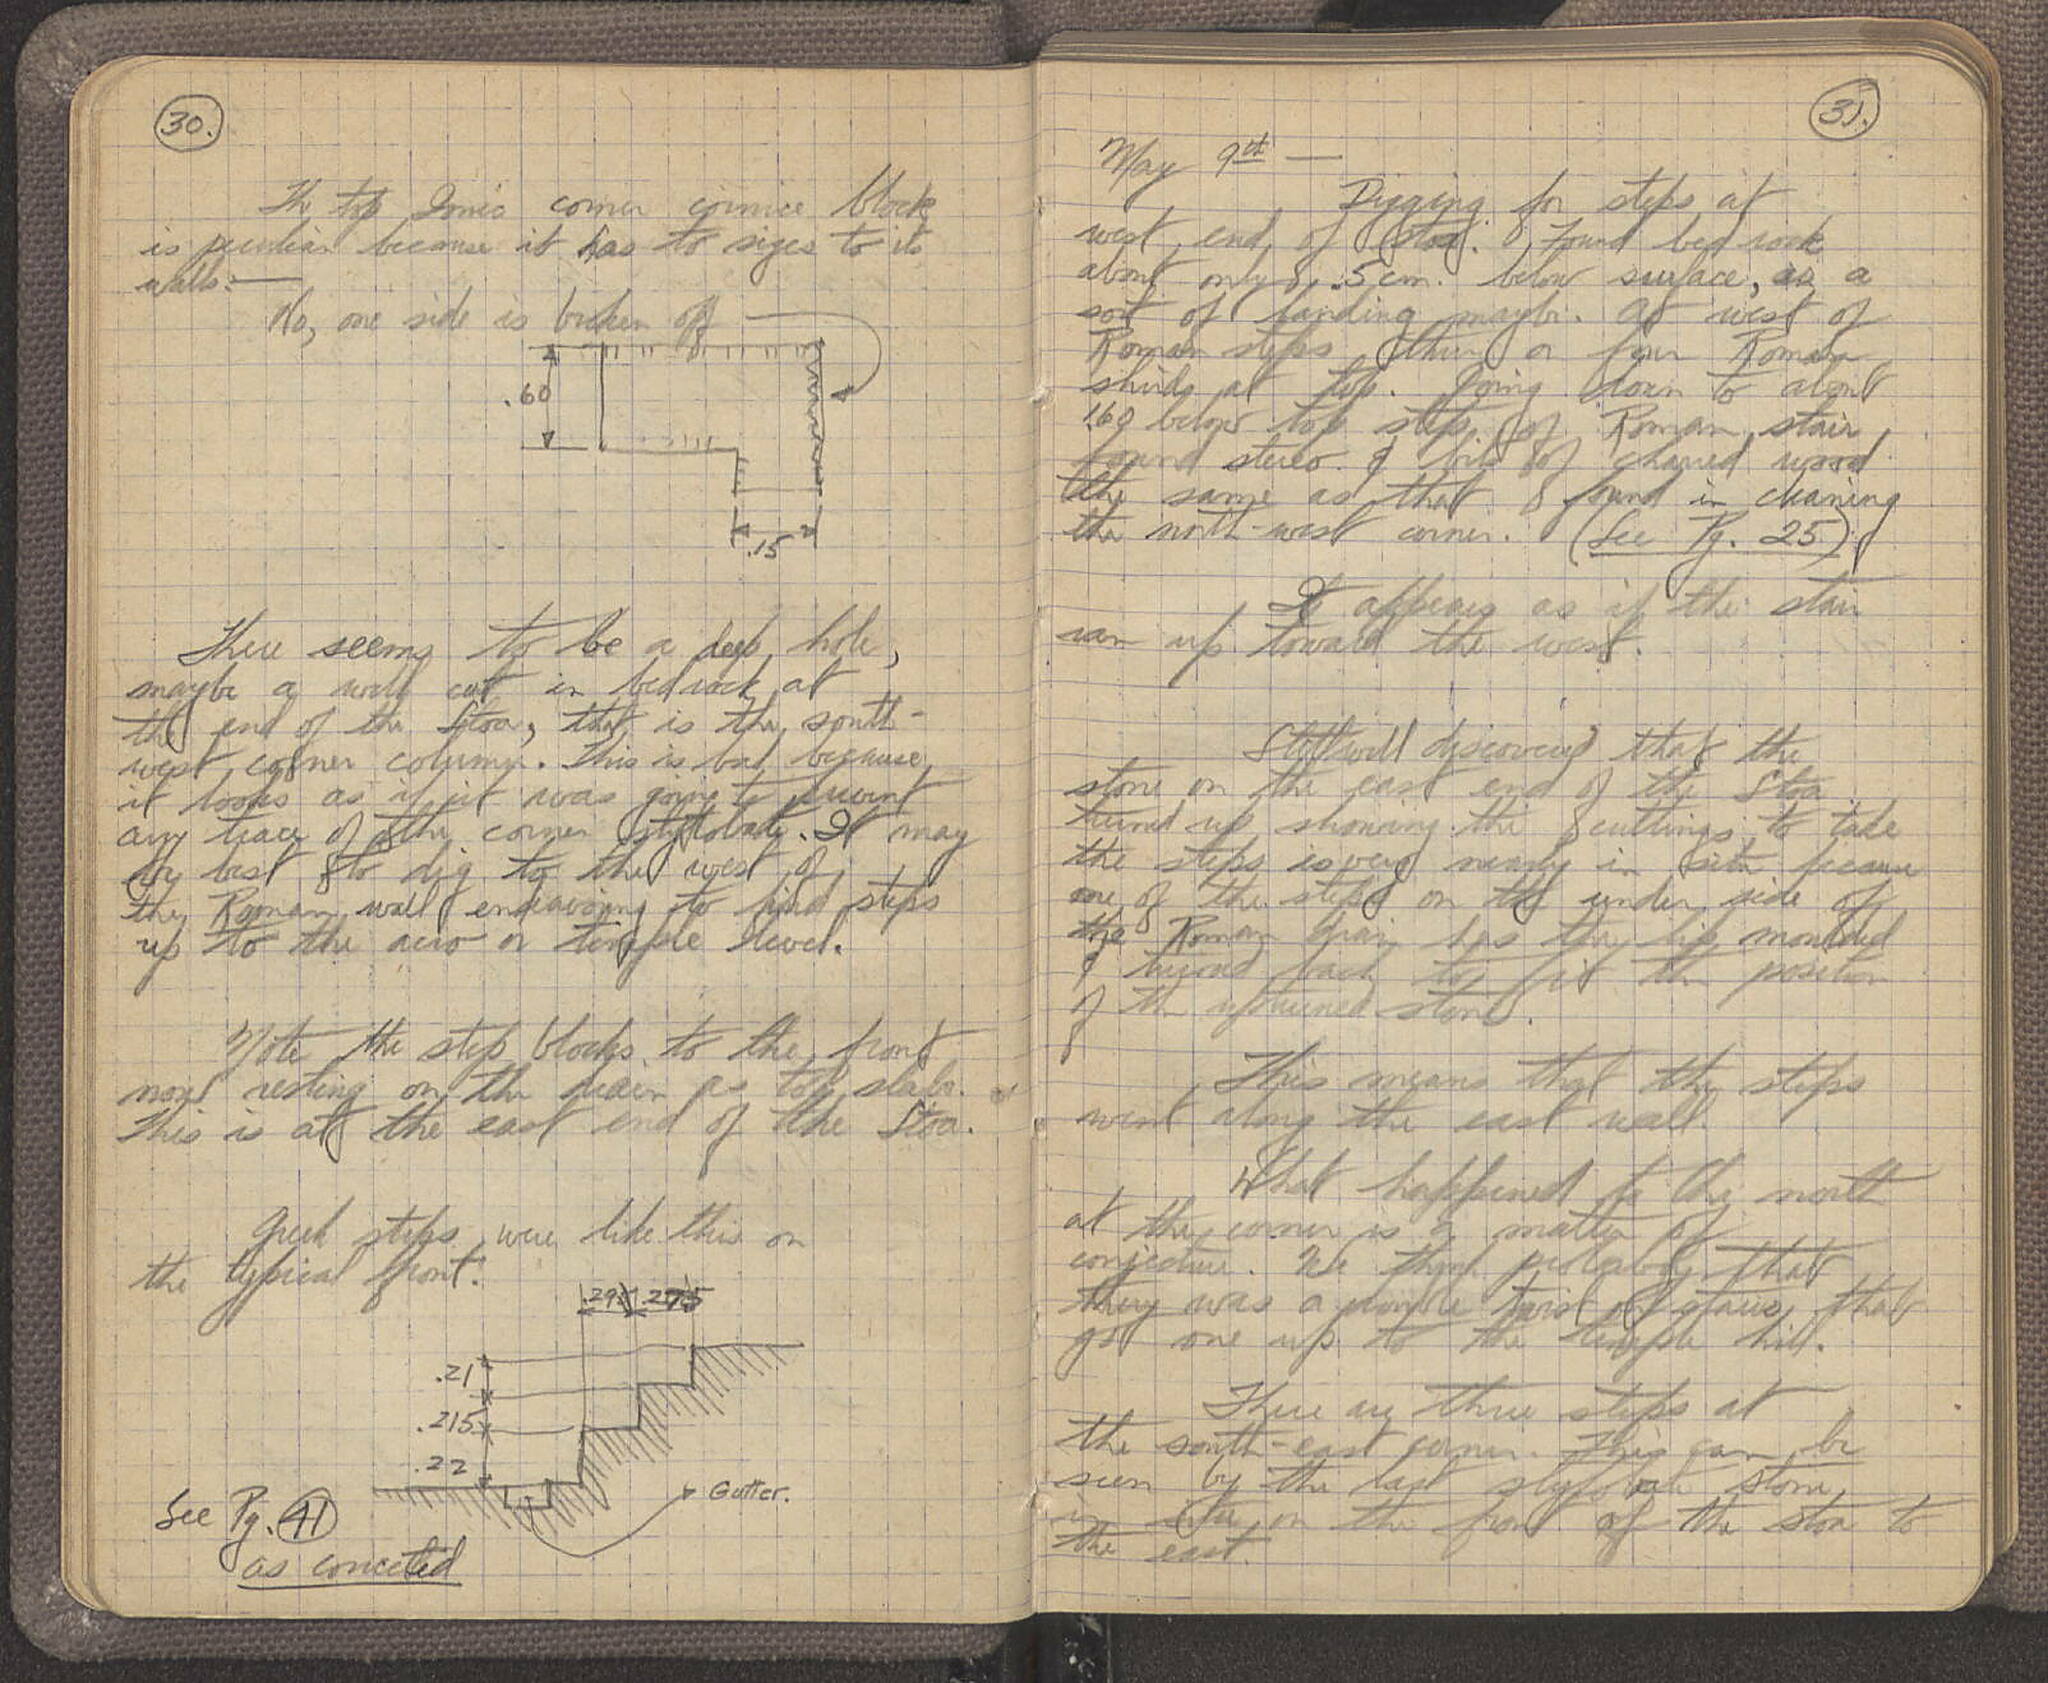 30.
The top Ionic corner cornice block
is peculiar because it has to sizes to its
walls:—
No, one side is broken off —
.60
.15
There seems to be a deep hole,
maybe a well cut in bedrock at
the end of the Stoa, that is the south-
west corner column. This is bad because
it looks as if it was going to prevent
any trace of the corner stylobate. It may
be best to dig to the west of
the Roman wall endeavoring to find steps
up to the acro or temple level.
Note the step blocks to the front
now resting on the drain as top slabs.
This is at the east end of the Stoa.
Greek steps were like this on
the typical front:
.295 .275
.21
.215
.22
Gutter.
See Pg. 41
as corrected
31.
May 9th —
Digging for steps at
west end of stoa. Found bed rock
about only .5 cm. below surface, as a
sort of landing maybe. At west of
Roman steps three or four Roman
sherds at top. Going down to about
1.60 below top step of Roman stair
found stereo & bits of charred wood
the same as that I found in cleaning
the north-west corner. (See Pg. 25)
It appears as if the stair
ran up toward the west.
Stillwell discovered that the
stone on the east end of the Stoa
turned up showing the cuttings to take
the steps is very nearly in situ because
one of the steps on the under side of
the Roman drain has the lip moulded
& turned back to fit the position
of the upturned stone.
This means that the steps
went along the east wall.
What happened to the north
at the corner is a matter of
conjecture. We think probably that
there was a simple twist of stairs that
got one up to the temple hill.
There are three steps at
the south-east corner. This can be
seen by the last stylobate stone
in situ on the front of the stoa to
the east.